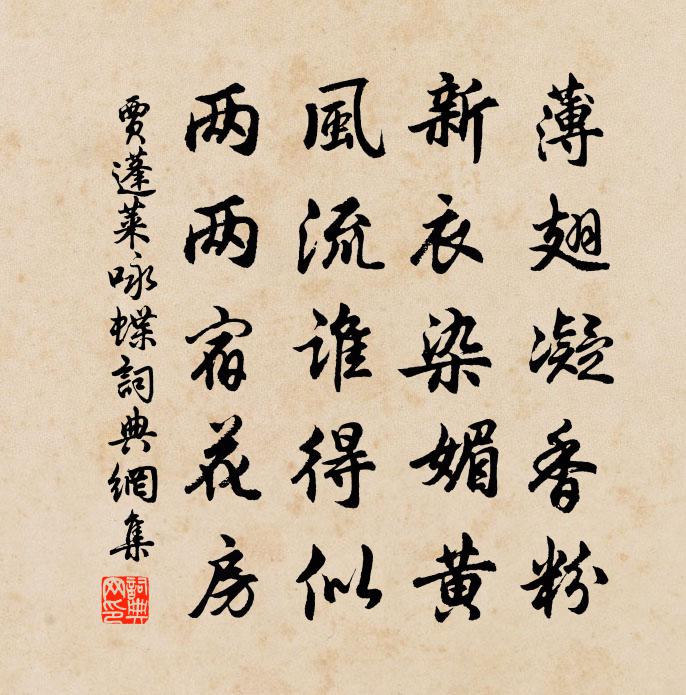 薄翅凝香粉
新衣染媚黄
風流谁得似
两两宿花房
賈蓬莱咏蝶詞典網集
詞典網印